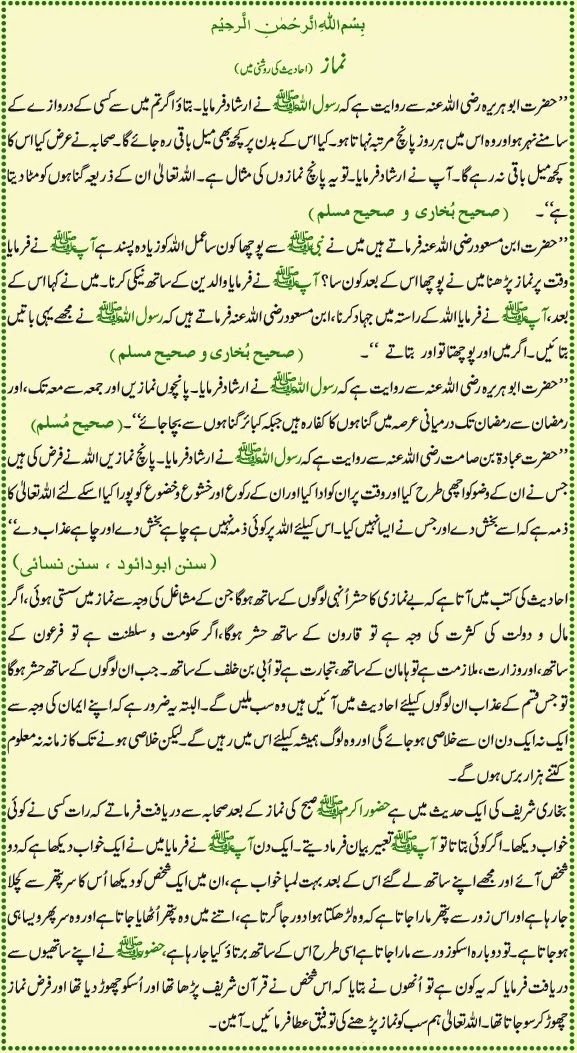 بِسْمِ اللهِ الرَّحْمٰنِ الرَّحِيْمِ
نماز (احادیث کی روشنی میں)
’’حضرت ابوہریرہ رضی اللہ عنہ سے روایت ہے کہ رسول اللہ ﷺ نے ارشاد فرمایا۔ بتاؤ اگر تم میں سے کسی کے دروازے کے
سامنے نہر ہو اور وہ اس میں ہر روز پانچ مرتبہ نہاتا ہو۔ کیا اس کے بدن پر کچھ بھی میل باقی رہ جائے گا۔ صحابہ نے عرض کیا اس کا
کچھ میل باقی نہ رہے گا۔ آپ نے ارشاد فرمایا۔ تو یہ پانچ نمازوں کی مثال ہے۔ اللہ تعالیٰ ان کے ذریعہ گناہوں کو مٹا دیتا
ہے‘‘۔ (صحیح بُخاری و صحیح مسلم)
’’حضرت ابن مسعود رضی اللہ عنہ فرماتے ہیں میں نے نبی ﷺ سے پوچھا کون سا عمل اللہ کو زیادہ پسند ہے آپ ﷺ نے فرمایا
وقت پر نماز پڑھنا میں نے پوچھا اس کے بعد کون سا؟ آپ ﷺ نے فرمایا والدین کے ساتھ نیکی کرنا۔ میں نے کہا اس کے
بعد، آپ ﷺ نے فرمایا اللہ کے راستہ میں جہاد کرنا، ابن مسعود رضی اللہ عنہ فرماتے ہیں کہ رسول اللہ ﷺ نے مجھے یہی باتیں
بتائیں۔ اگر میں اور پوچھتا تو اور بتاتے ‘‘۔ (صحیح بُخاری و صحیح مسلم)
’’حضرت ابوہریرہ رضی اللہ عنہ سے روایت ہے کہ رسول اللہ ﷺ نے ارشاد فرمایا۔ پانچوں نمازیں اور جمعہ سے معہ تک، اور
رمضان سے رمضان تک درمیانی عرصہ میں گناہوں کا کفارہ ہیں جبکہ کبائر گناہوں سے بچا جائے‘‘۔ (صحیح مُسلم)
’’حضرت عبادۃ بن صامت رضی اللہ عنہ سے روایت ہے کہ رسول اللہ ﷺ نے ارشاد فرمایا۔ پانچ نمازیں اللہ نے فرض کی ہیں
جس نے ان کے وضو کو اچھی طرح کیا اور وقت پر ان کو ادا کیا اور ان کے رکوع اور خشوع و خضوع کو پورا کیا اسکے لئے اللہ تعالیٰ کا
ذمہ ہے کہ اسے بخش دے اور جس نے ایسا نہیں کیا۔ اس کیلئے اللہ پر کوئی ذمہ نہیں ہے چاہے بخش دے اور چاہے عذاب دے‘‘
(سنن ابودائود ، سنن نسائی)
احادیث کی کتب میں آتا ہے کہ بے نمازی کا حشر اُنہی لوگوں کے ساتھ ہوگا جن کے مشاغل کی وجہ سے نماز میں سستی ہوئی، اگر
مال و دولت کی کثرت کی وجہ ہے تو قارون کے ساتھ حشر ہوگا، اگر حکومت و سلطنت ہے تو فرعون کے
ساتھ، اور وزارت، ملازمت ہے تو ہامان کے ساتھ، تجارت ہے تو اُبی بن خلف کے ساتھ۔ جب ان لوگوں کے ساتھ حشر ہوگا
تو جس قسم کے عذاب ان لوگوں کیلئے احادیث میں آئیں ہیں وہ سب ملیں گے۔ البتہ یہ ضرور ہے کہ اپنے ایمان کی وجہ سے
ایک نہ ایک دن ان سے خلاصی ہو جائے گی اور وہ لوگ ہمیشہ کیلئے اس میں رہیں گے۔ لیکن خلاصی ہونے تک کا زمانہ نہ معلوم
کتنے ہزار برس ہوں گے۔
بخاری شریف کی ایک حدیث میں ہے حضور اکرم ﷺ صبح کی نماز کے بعد صحابہ سے دریافت فرماتے کہ رات کسی نے کوئی
خواب دیکھا۔ اگر کوئی بتاتا تو آپ ﷺ تعبیر بیان فرما دیتے۔ ایک دن آپ ﷺ نے فرمایا میں نے ایک خواب دیکھا ہے کہ دو
شخص آئے اور مجھے اپنے ساتھ لے گئے اس کے بعد بہت لمبا خواب ہے، ان میں ایک شخص کو دیکھا اُس کا سر پتھر سے کچلا
جا رہا ہے اور اس زور سے پتھر مارا جاتا ہے کہ وہ لڑھکتا ہوا دور جا گرتا ہے، اتنے میں وہ پتھر اُٹھایا جاتا ہے اور وہ سر پھر ویسا ہی
ہو جاتا ہے۔ تو دوبارہ اسکو زور سے مارا جاتا ہے اسی طرح اس کے ساتھ برتاؤ کیا جا رہا ہے، حضور ﷺ نے اپنے ساتھیوں سے
دریافت فرمایا کہ یہ کون ہے تو اُنھوں نے بتایا کہ اس شخص نے قرآن شریف پڑھا تھا اور اُسکو چھوڑ دیا تھا اور فرض نماز
چھوڑ کر سو جاتا تھا۔ اللہ تعالیٰ ہم سب کو نماز پڑھنے کی توفیق عطا فرمائیں۔ آمین۔